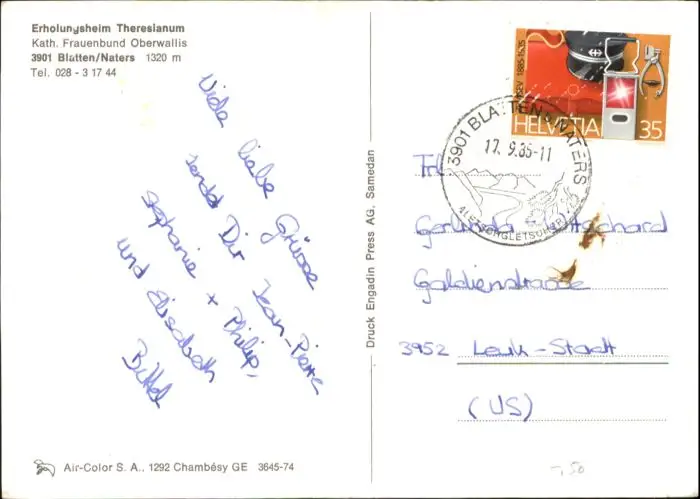 Erholungsheim Theresianum
Kath. Frauenbund Oberwallis
3901 Blatten/Naters 1320 m
Tel. 028 - 3 17 44
Viele liebe Grüsse
sendet Dir Jean-Pierre
Stephanie + Philip,
und Elisabeth
Bittel
Druck Engadin Press AG, Samedan
HELVETIA 35
3901 BLATTEN b. NATERS
17. 9.85-11
ALETSCHGLETSCHER
Frl
Gerlinde
Galdienstrasse
3952 Leuk-Stadt
(US)
Air-Color S. A., 1292 Chambésy GE 3645-74
-,50